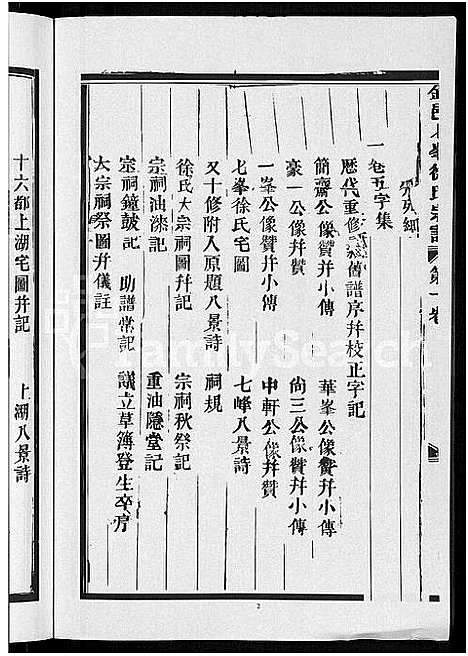 一卷五字集
歷代重修舊譜序幷校正字記
簡齋公像贊幷小傳 華峯公像贊幷小傳
豪一公像幷贊 尙三公像贊幷小傳
一峯公像贊幷小傳 中軒公像幷贊
七峯徐氏宅圖 七峰八景詩
又十修附入原題八景詩 祠規
徐氏大宗祠圖幷記 宗祠秋祭記
宗祠油漆記 重油隱堂記
宗祠鐘鼓記 助譜常記 議立草簿登生卒序
大宗祠祭圖幷儀註
十六都上湖宅圖幷記 上湖八景詩
徐氏宗譜 第一卷
2
FamilySearch